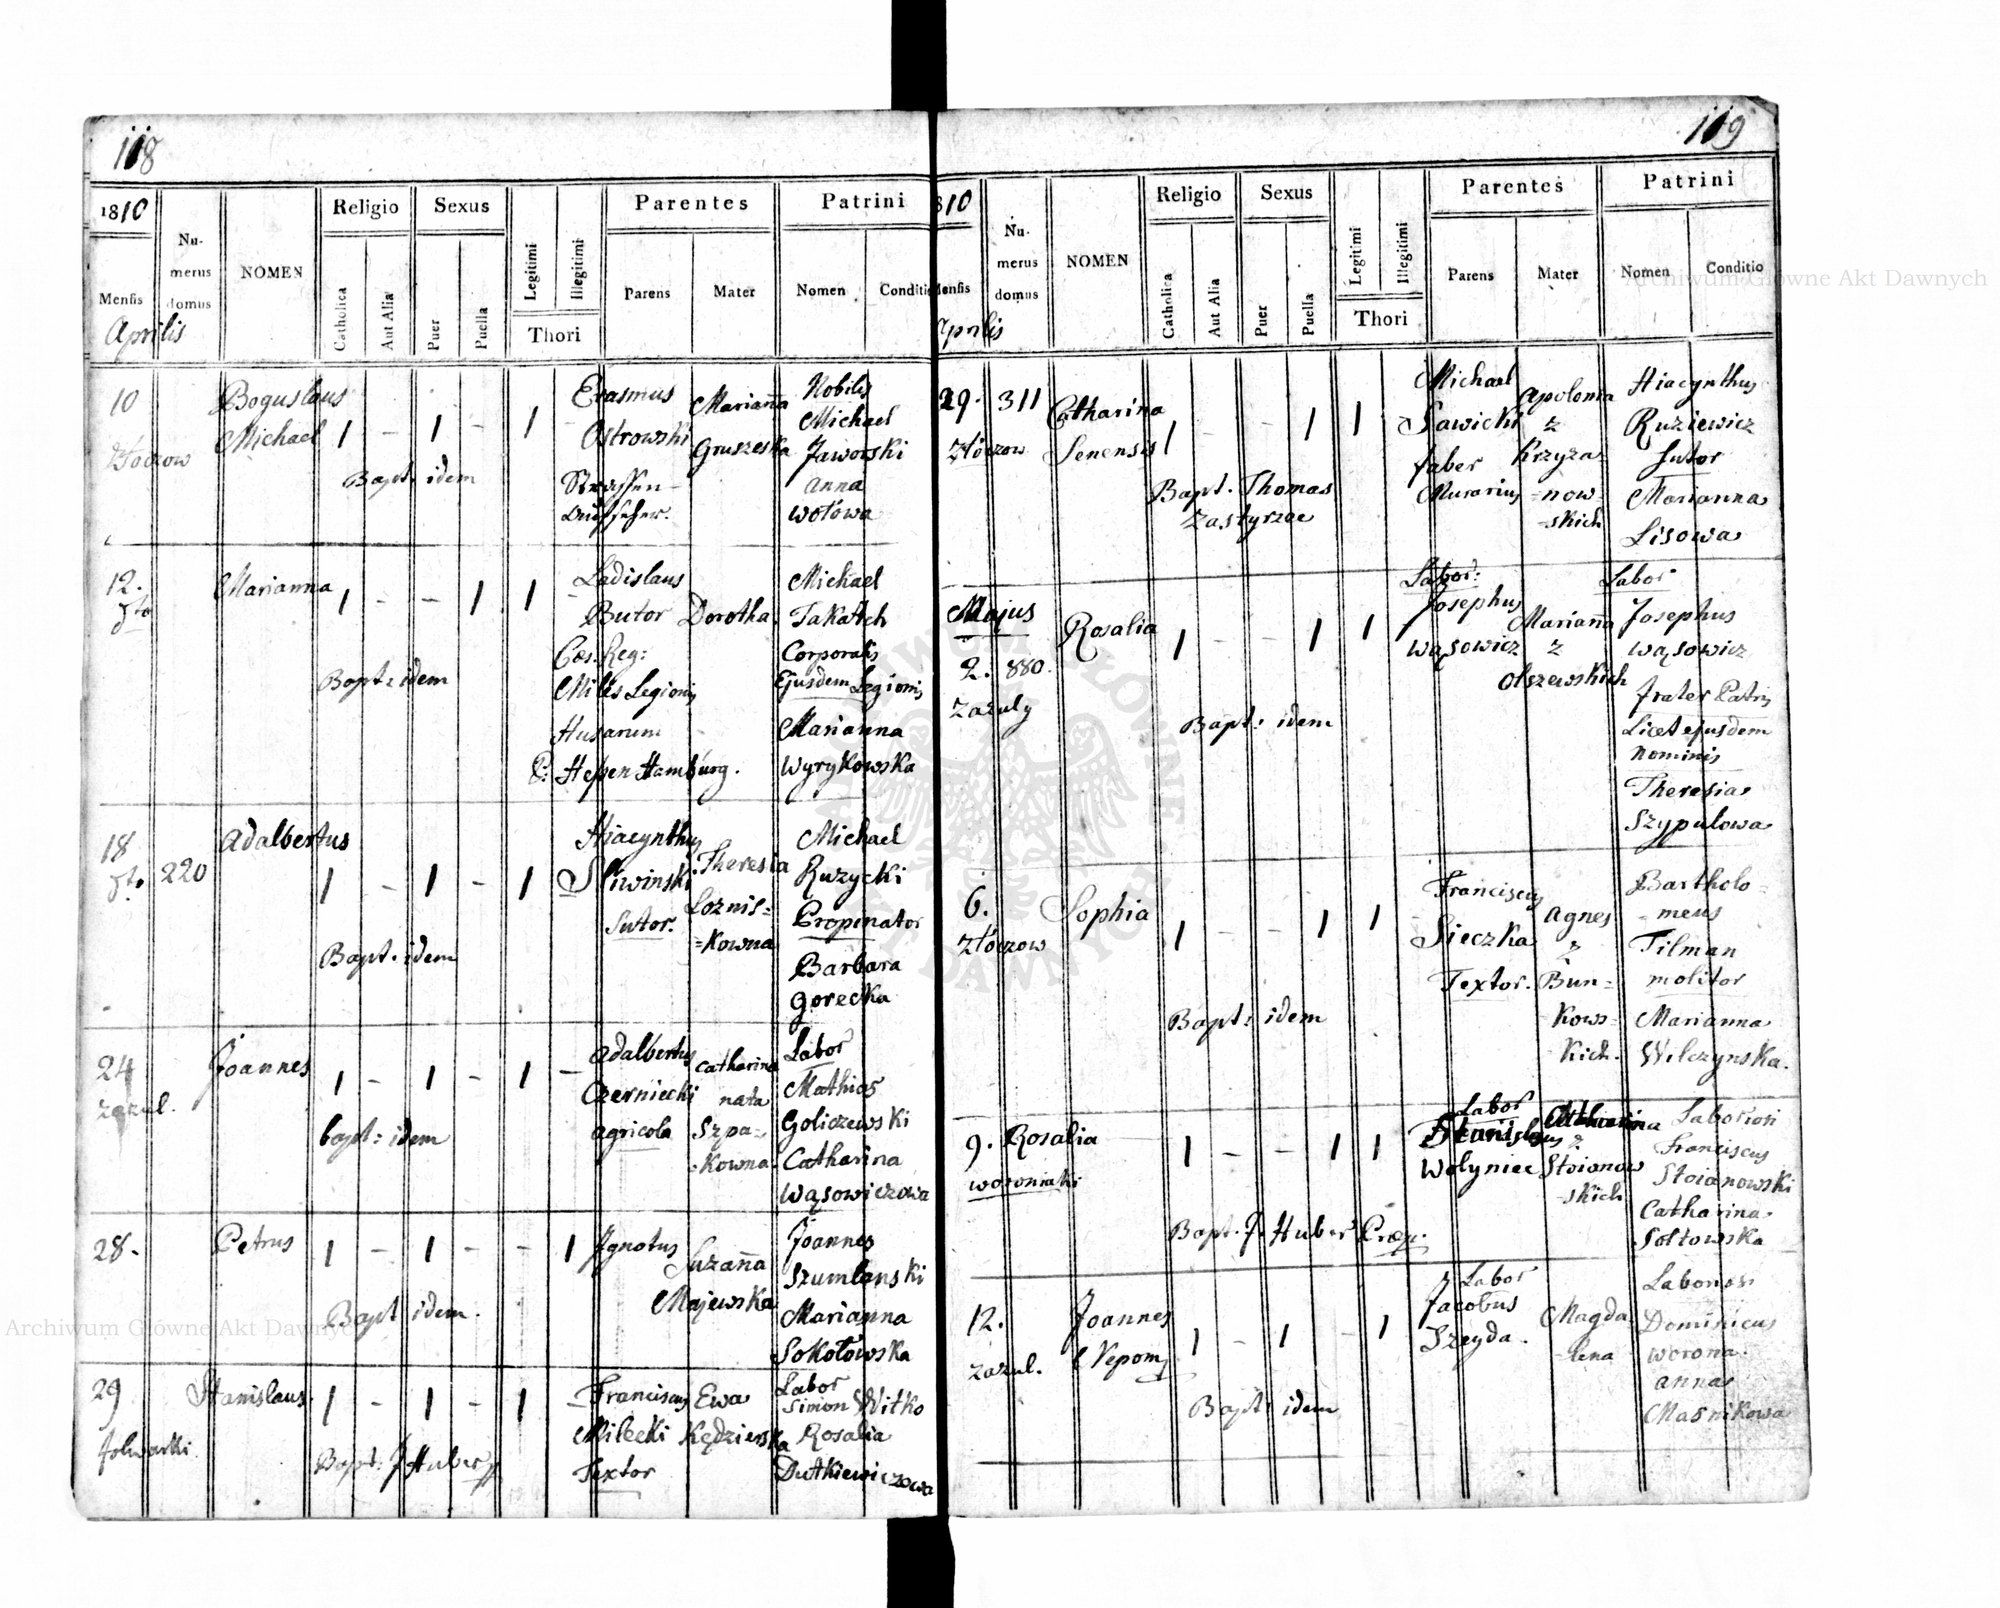 118
1810
Numerus domus
NOMEN
Religio
Sexus
Legitimi
Illegitimi
Parentes
Patrini
Mensis
Aprilis
Catholica
Aut Alia
Puer
Puella
Thori
Parens
Mater
Nomen
Conditio
10
Złoczow
Boguslaus
Michael
1 - 1 - 1 -
Bapt. idem
Erasmus
Ostrowski
Marianna
Gruszeska
Nobilis
Michael
Jaworski
Anna
Wołowa
12.
dto
Marianna
1 - - 1 1 -
Bapt: idem
Ladislaus
Butor
Cæs. Reg:
Miles Legionis
Husarum
P. Hessen Hamburg.
Dorotha
Michael
Takatch
Corporalis
Ejusdem Legionis
Marianna
Wyrykowska
18
dto.
220
Adalbertus
1 - 1 - 1
Bapt. idem
Hiacynthus
Sliwinski
Sutor.
Theresia
Loznis=
=kowna
Michael
Ruzycki
Propinator
Barbara
Gorecka
24
Zazul.
Joannes
1 - 1 - 1 -
bapt: idem
Adalbertus
Czerniecki
Agricola
Catharina
nata
Szpa-
-kowna
Labor
Mathias
Goliczewski
Catharina
Wąsowiczowa
28.
Petrus
1 - 1 - - 1
Bapt idem.
Ignotus
Suzanna
Majewska
Joannes
Szumlanski
Marianna
Sokołowska
29
folwarki
Stanislaus.
1 - 1 - 1 -
Bapt: J Huber
Franciscus
Milecki
Textor
Ewa
Kędzierska
Labor
Simon Witko
Rosalia
Dutkiewiczowa
119
810
Mensis
Aprilis
Numerus domus
NOMEN
Religio
Sexus
Legitimi
Illegitimi
Parentes
Patrini
Catholica
Aut Alia
Puer
Puella
Thori
Parens
Mater
Nomen
Conditio
29.
311
Złoczow
Catharina
Senensis
1 - - 1 1
Bapt. Thomas
Zastyrzec
Michael
Sawicki
faber
Murarius
Apolonia
z
Krzyza=
=now=
-skich
Hiacynthus
Ruziewicz
Sutor
Marianna
Lisowa
Majus
2.
880.
Zazuly
Rosalia
1 - - 1 1
Bapt: idem
Labor:
Josephus
Wąsowicz
Marianna
z
Olszewskich
Labor
Josephus
Wąsowicz
frater Patris
Licet ejusdem
Nominis
Theresia
Szypulowa
6.
Złoczow
Sophia
1 - - 1 1
Bapt: idem
Franciscus
Sieczka
Textor.
Agnes
z
Bun=
Kows=
Kich.
Bartholo=
=meus
Tilman
molitor
Marianna
Wilczynska.
9.
Woroniaki
Rosalia
1 - - 1 1
Bapt. J. Huber Præp.
Labor
Stanislaus
Wolyniec
Catharina
z
Stoianow
-skich
Laboriosi
Franciscus
Stoianowski
Catharina
Sołtowska
12.
Zazul.
Joannes
Nepom
1 - 1 - 1
Bapt: idem
Labor
Jacobus
Szeyda.
Magda
-lena
Laboriosi
Dominicus
Worona.
Anna
Masnikowa
Archiwum Główne Akt Dawnych
Archiwum Główne Akt Dawnych